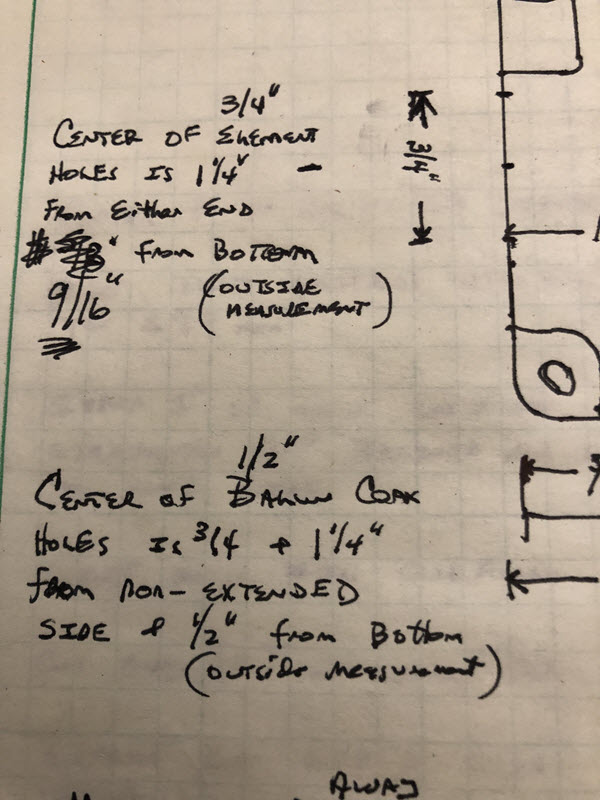 3/4"
CENTER OF ELEMENT
HOLES IS 1 1/4" -
From Either END
" From BOTTOM
9/16" (OUTSIDE
MEASUREMENT)
3/4"
1/2"
CENTER OF BALUN COAX
HOLES IS 3/4 + 1 1/4"
from non-EXTENDED
SIDE & 1/2" from Bottom
(OUTSIDE MEASUREMENT)
AWAY